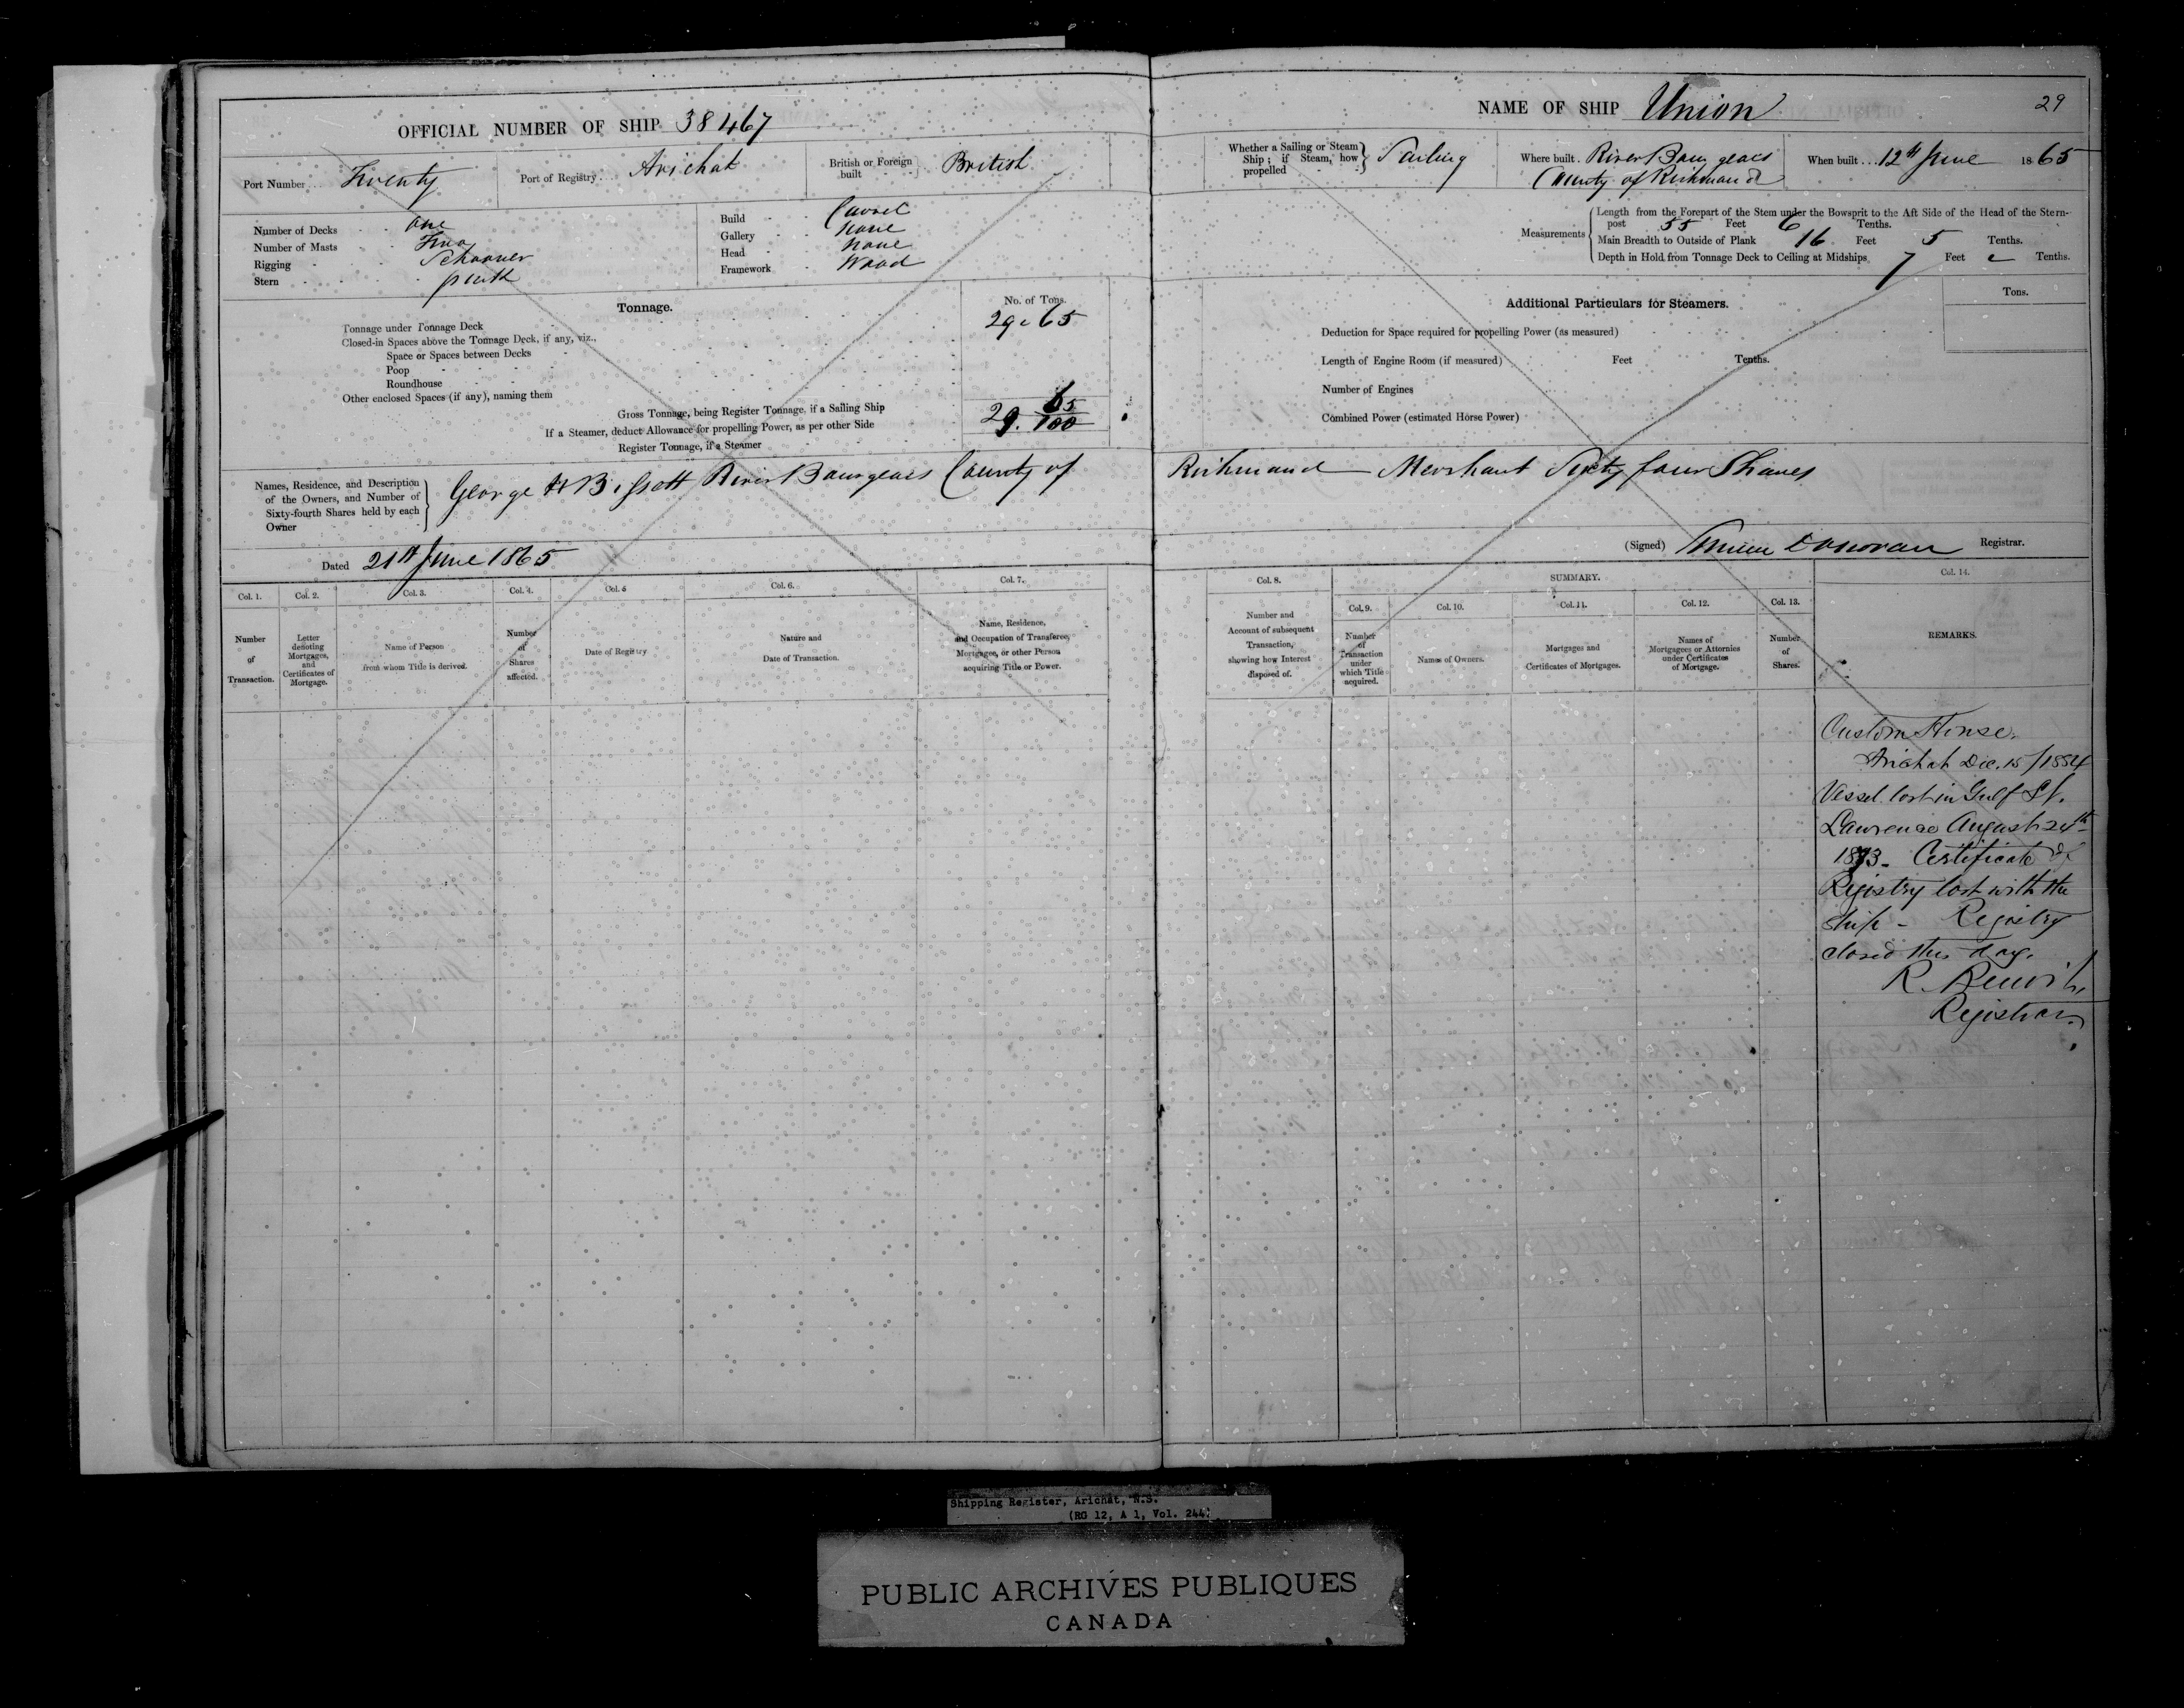 OFFICIAL NUMBER OF SHIP 38467
Port Number Twenty
Port of Registry Arichat
British or Foreign built British
Number of Decks one
Number of Masts Two
Rigging Schooner
Stern
Build Carvel
Gallery none
Head none
Framework Wood
Tonnage.
No. of Tons.
Tonnage under Tonnage Deck 29.65
Closed-in Spaces above the Tonnage Deck, if any, viz.,
Space or Spaces between Decks
Poop
Roundhouse
Other enclosed Spaces (if any), naming them
Gross Tonnage, being Register Tonnage, if a Sailing Ship 29. 65/100
If a Steamer, deduct Allowance for propelling Power, as per other Side
Register Tonnage, if a Steamer
Names, Residence, and Description of the Owners, and Number of Sixty-fourth Shares held by each Owner
George H Bissett River Bourgeois County of
Dated 21st June 1865
Col. 1. Col. 2. Col. 3. Col. 4. Col. 5 Col. 6. Col. 7.
Number of Transaction.
Letter denoting Mortgages, and Certificates of Mortgage.
Name of Person from whom Title is derived.
Number of Shares affected.
Date of Registry
Nature and Date of Transaction.
Name, Residence, and Occupation of Transferee, Mortgagee, or other Person acquiring Title or Power.
NAME OF SHIP Union
29
Whether a Sailing or Steam Ship; if Steam, how propelled Sailing
Where built River Bourgeois
County of Richmond
When built 12th June 1865
Measurements
Length from the Forepart of the Stem under the Bowsprit to the Aft Side of the Head of the Stern-
post 55 Feet 6 Tenths.
Main Breadth to Outside of Plank 16 Feet 5 Tenths.
Depth in Hold from Tonnage Deck to Ceiling at Midships 7 Feet Tenths.
Additional Particulars for Steamers.
Tons.
Deduction for Space required for propelling Power (as measured)
Length of Engine Room (if measured) Feet Tenths.
Number of Engines
Combined Power (estimated Horse Power)
Richmond Merchant Sixty four Shares
(Signed) Donovan Registrar.
Col. 8. SUMMARY. Col. 14.
Col. 9. Col. 10. Col. 11. Col. 12. Col. 13.
Number and Account of subsequent Transaction, showing how Interest disposed of.
Number of Transaction under which Title acquired.
Names of Owners.
Mortgages and Certificates of Mortgages.
Names of Mortgagees or Attornies under Certificates of Mortgage.
Number of Shares.
REMARKS.
Custom House.
Arichat Dec. 15/1884
Vessel lost in Gulf St.
Lawrence August 24th
1873 - Certificate of
Registry lost with the
ship - Registry
closed this day.
R.
Registrar.
Shipping Register, Arichat, N.S.
(RG 12, A 1, Vol. 244)
PUBLIC ARCHIVES PUBLIQUES
CANADA